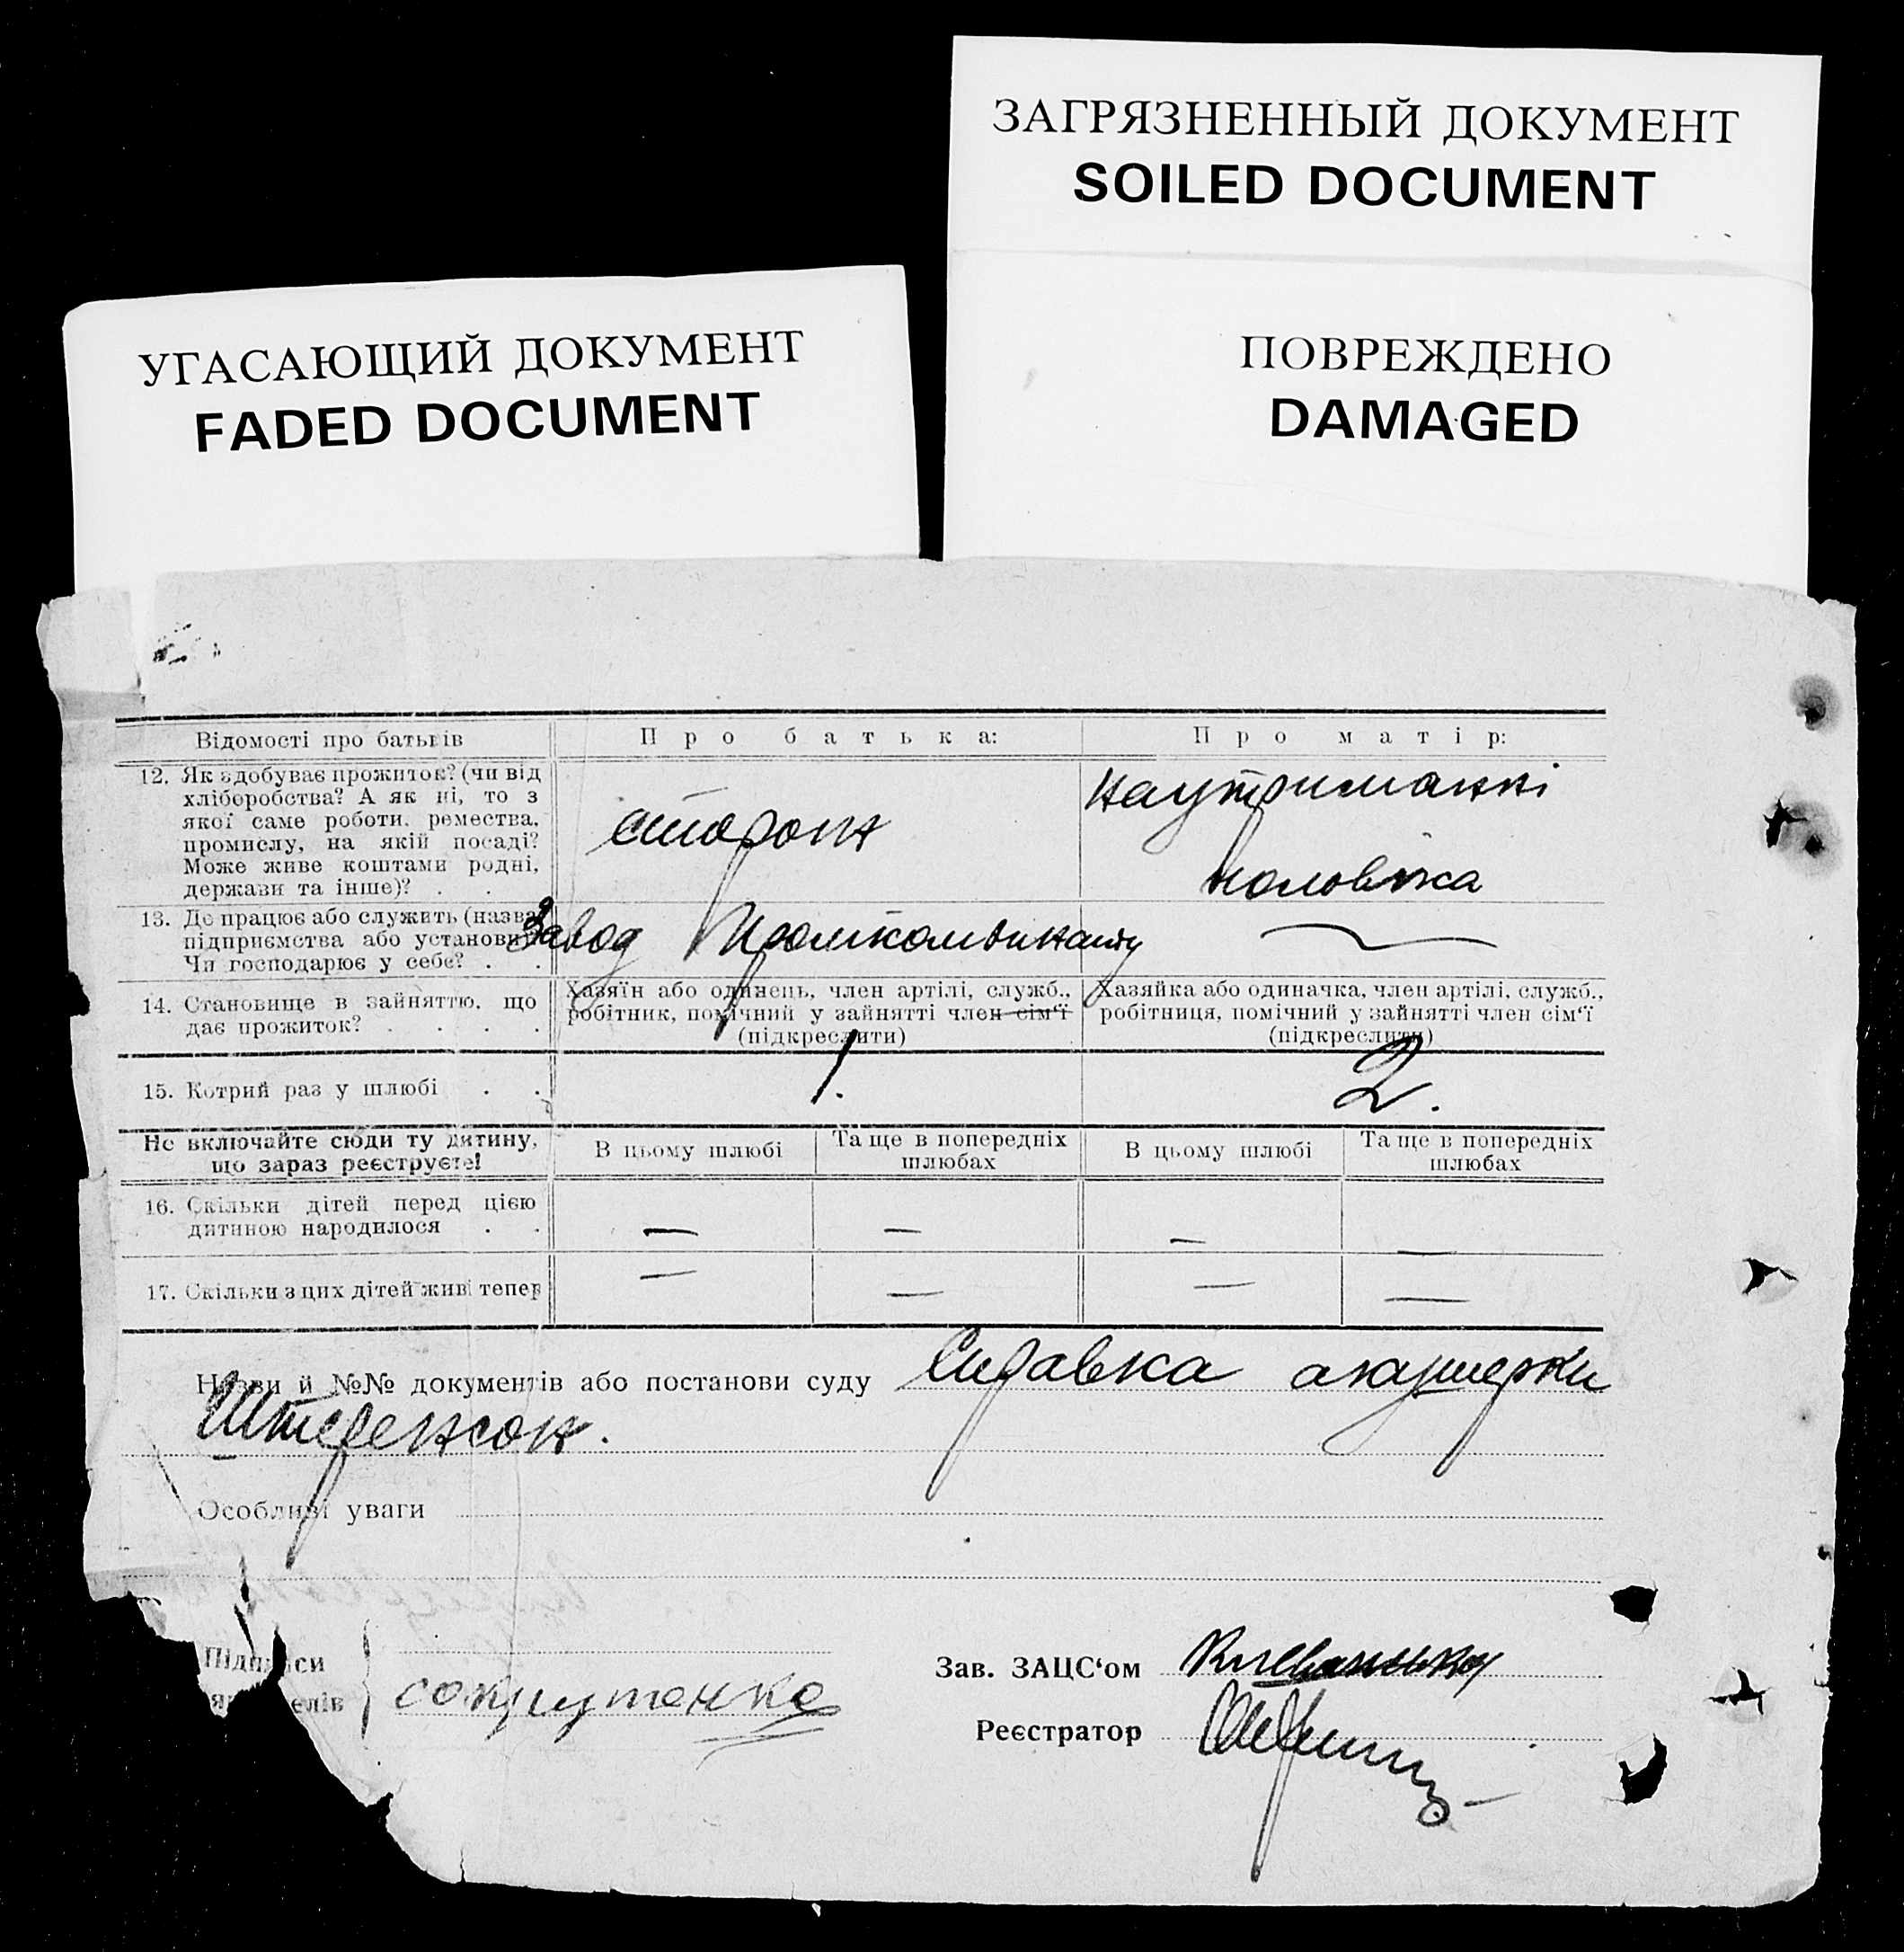 ЗАГРЯЗНЕННЫЙ ДОКУМЕНТ
SOILED DOCUMENT
УГАСАЮЩИЙ ДОКУМЕНТ
FADED DOCUMENT
ПОВРЕЖДЕНО
DAMAGED
Відомості про батьків
Про батька:
Про матір:
12. Як здобуває прожиток? (чи від
хліборобства? А як ні, то з
якої саме роботи, ремества,
промислу, на якій посаді?
Може живе коштами родні,
держави та інше)? . .
сторож
на утриманні
чоловіка
13. Де працює або служить (назва
підприємства або установи)
Чи господарює у себе? . .
Завод Промкомбинату
14. Становище в зайняттю, що
дає прожиток? . . . .
Хазяїн або одинець, член артілі, служб.,
робітник, помічний у зайнятті член сім‘ї
(підкреслити)
Хазяйка або одиначка, член артілі, служб.,
робітниця, помічний у зайнятті член сім‘ї
(підкреслити)
15. Котрий раз у шлюбі . .
1.
2.
Не включайте сюди ту дитину,
що зараз реєструєте!
В цьому шлюбі
Та ще в попередніх
шлюбах
В цьому шлюбі
Та ще в попередніх
шлюбах
16. Скільки дітей перед цією
дитиною народилося . .
— — — —
17. Скільки з цих дітей живі тепер
— — — —
Назви й №№ документів або постанови суду Справка акушерки
Штеренсон.
Особливі уваги
Підписи
Зав. ЗАЦС‘ом
Реєстратор